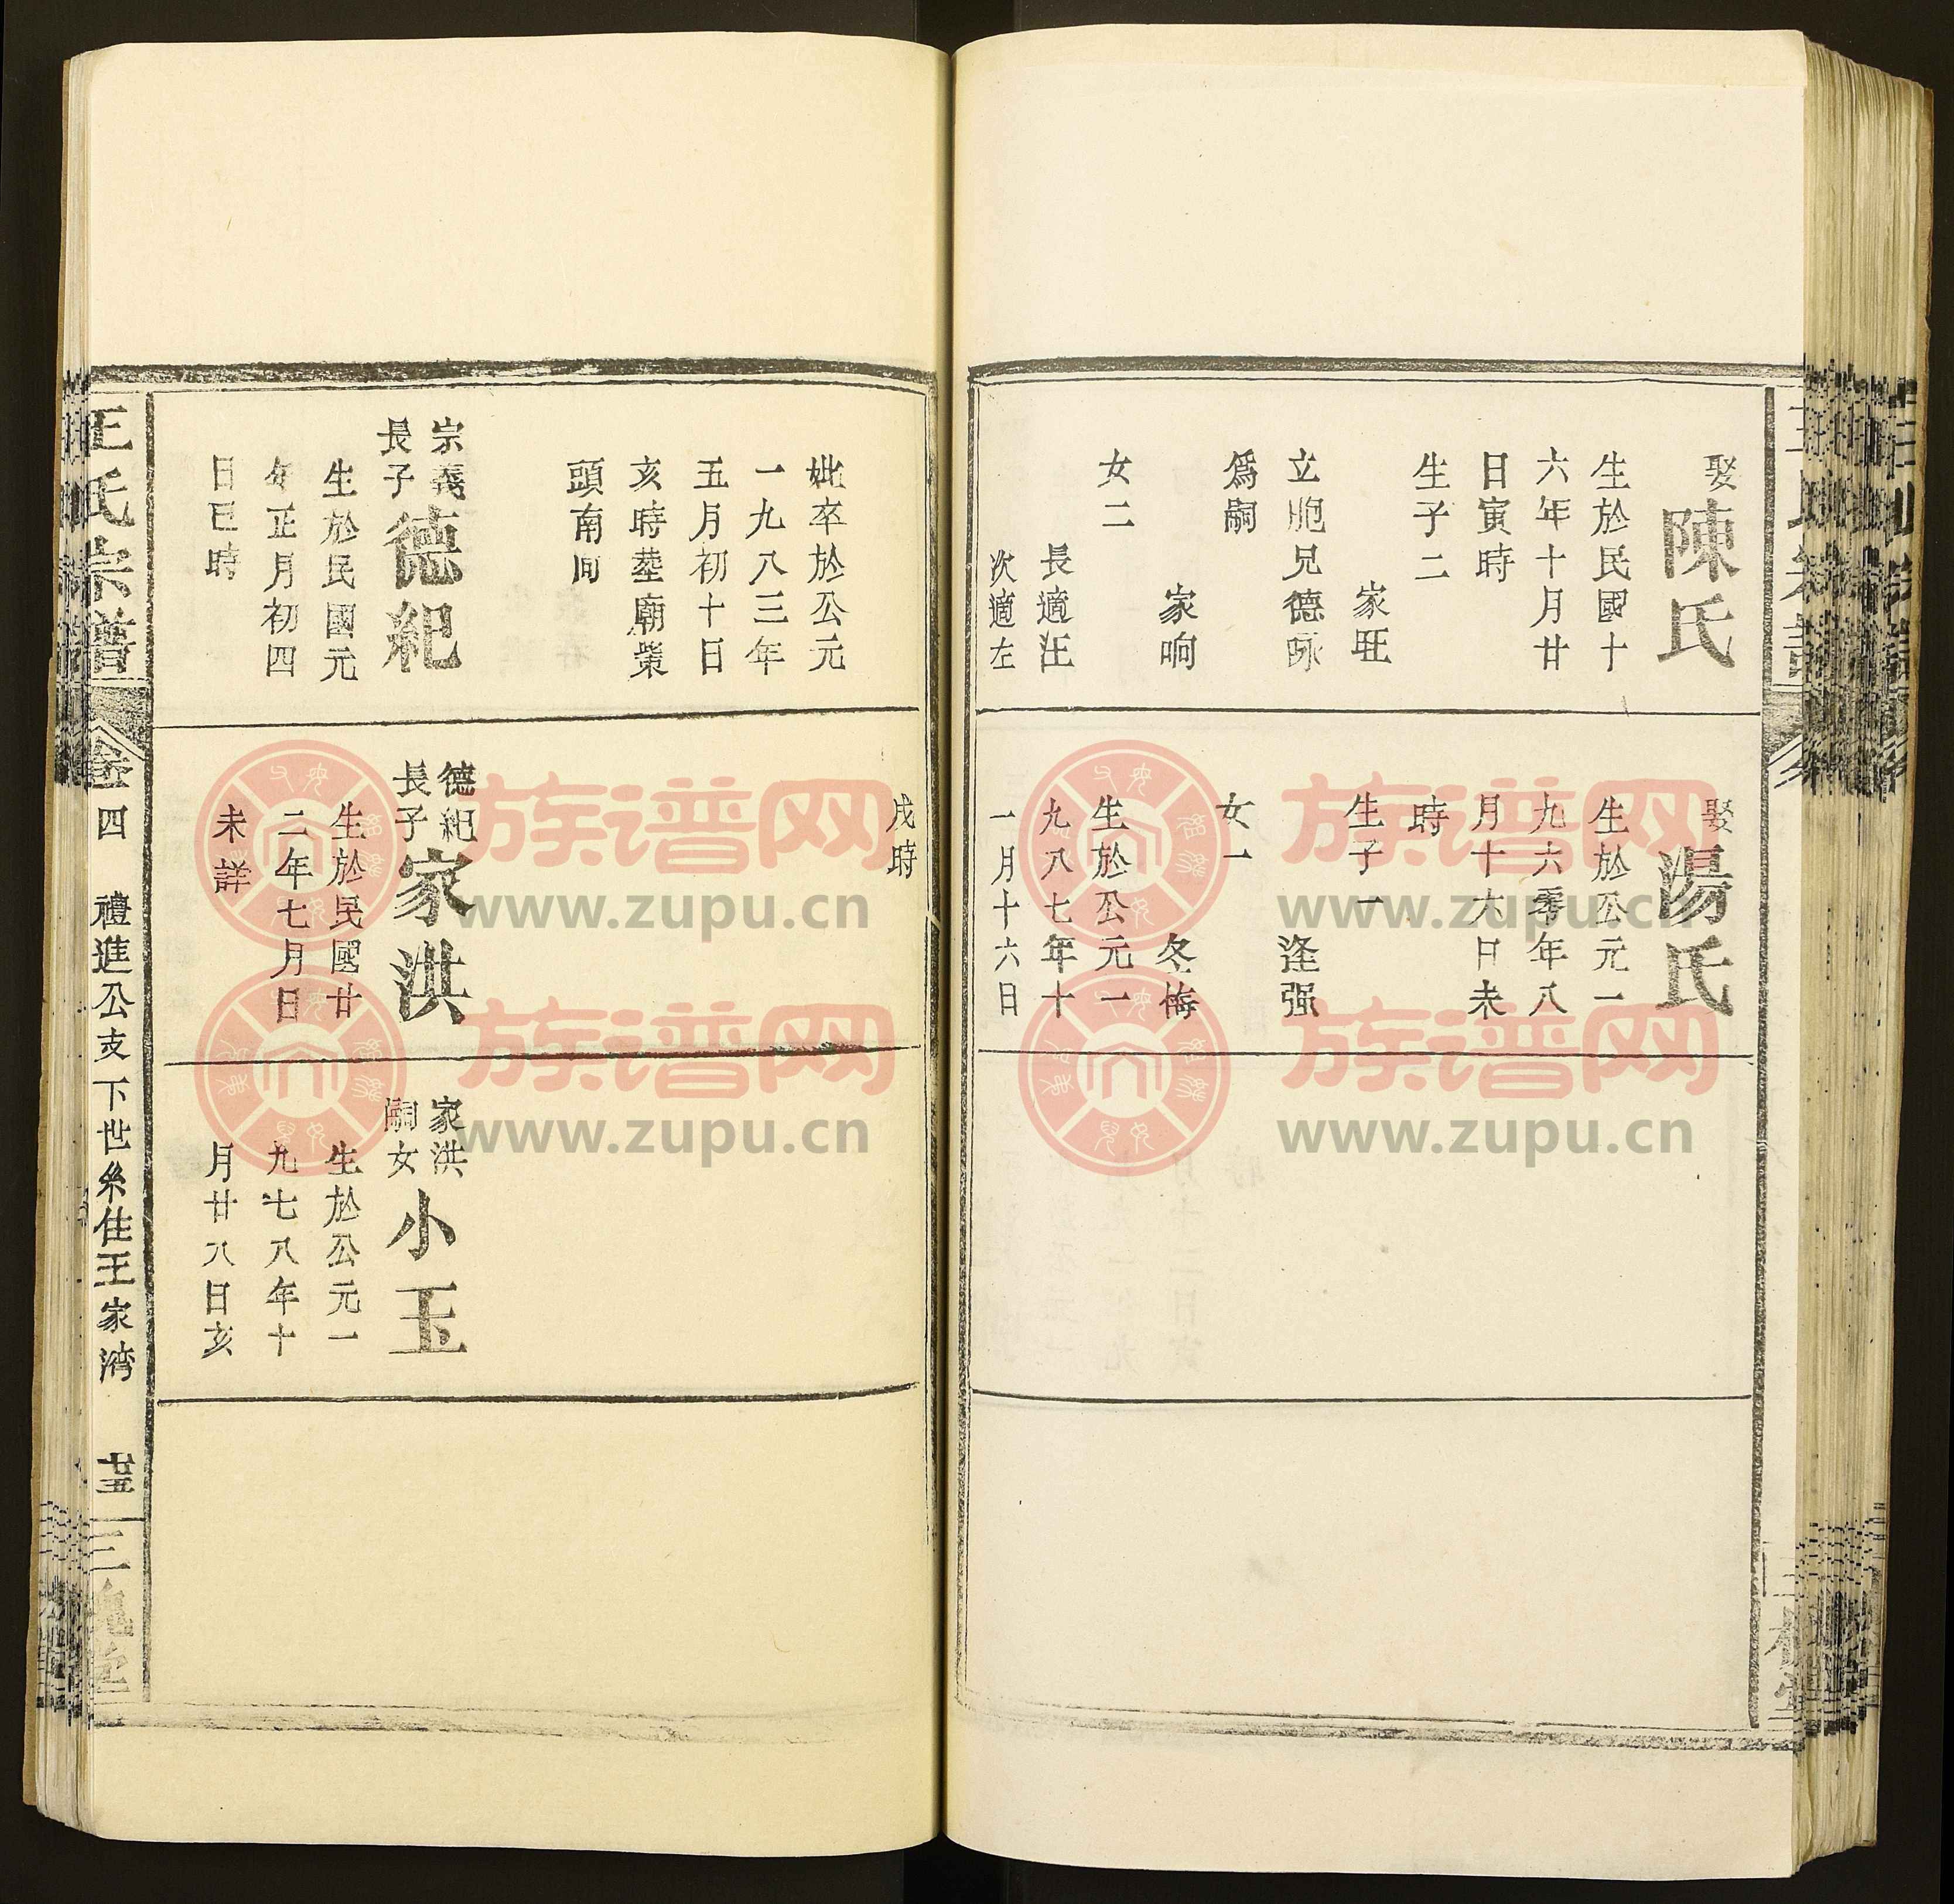 娶陳氏
生於民國十
六年十月廿
日寅時
生子二
家旺
立胞兄德咏
爲嗣
家响
女二
長適汪
次適左
娶湯氏
生於公元一
九六零年八
月十六日未
時
生子一
逢强
女一
冬梅
生於公元一
九八七年十
一月十六日
妣卒於公元
一九八三年
五月初十日
亥時塟廟
頭南向
宗義
長子
德紀
生於民國元
年正月初四
日巳時
戌時
德紀
長子
家洪
生於民國廿
二年七月日
未詳
家洪
嗣女
小玉
生於公元一
九七八年十
月廿八日亥
王氏宗譜
卷四
禮進公支下世系住王家灣
廿五
三槐堂
族谱网
www.zupu.cn
族谱网
www.zupu.cn
族谱网
www.zupu.cn
族谱网
www.zupu.cn